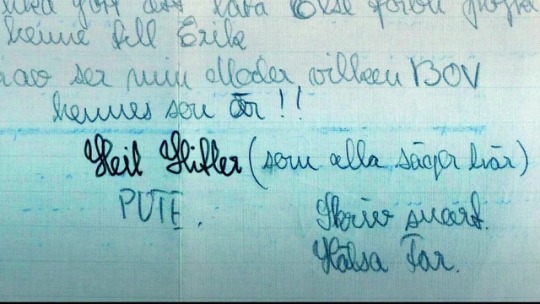 lära Else
henne till Erik
ser min Moder vilken BOV
hennes son är !!
Heil Hitler (som alla säger här)
PUTE.
Skriv snart.
Hälsa Far.